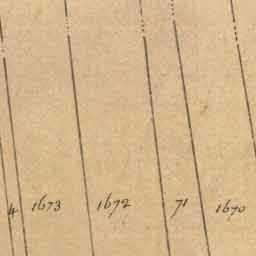 4 1673 1672 71 1670